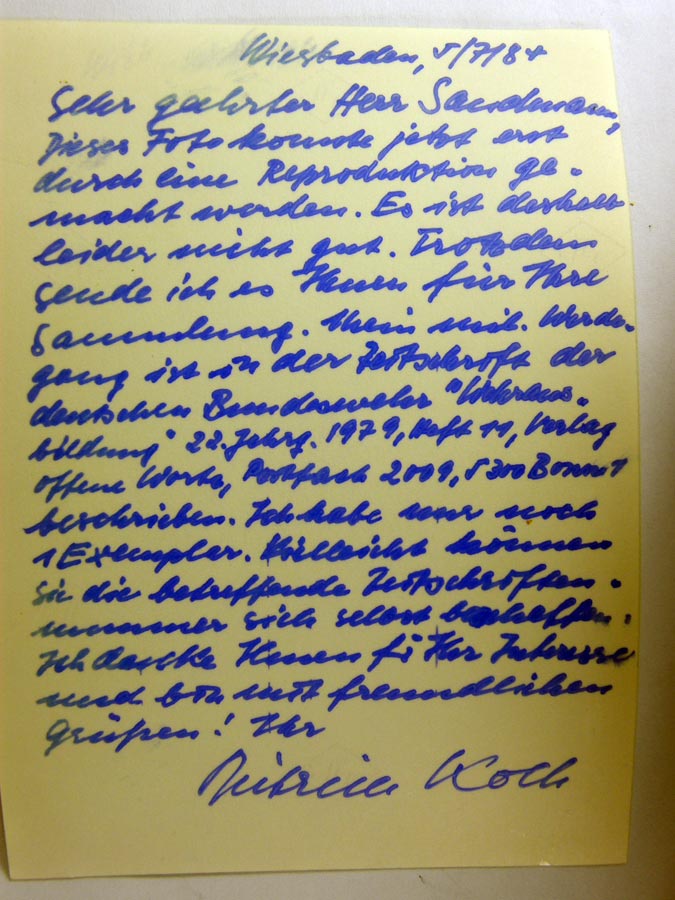 Wiesbaden, 5/7/84
Sehr geehrter Herr Sandmann,
Dieses Foto konnte jetzt erst
durch eine Reproduktion ge-
macht werden. Es ist deshalb
leider nicht gut. Trotzdem
sende ich es Ihnen für Ihre
Sammlung. Mein mil. Werde-
gang ist in der Zeitschrift der
deutschen Bundeswehr "Wehraus-
bildung" 22. Jahrg. 1979, Heft 11, Verlag
offene Worte, Postfach 2009, 5300 Bonn 1
beschrieben. Ich habe nur noch
1 Exemplar. Vielleicht können
Sie die betreffende Zeitschriften-
nummer sich selbst beschaffen.
Ich danke Ihnen f. Ihr Interesse
und bin mit freundlichen
Grüßen! Ihr
Koch